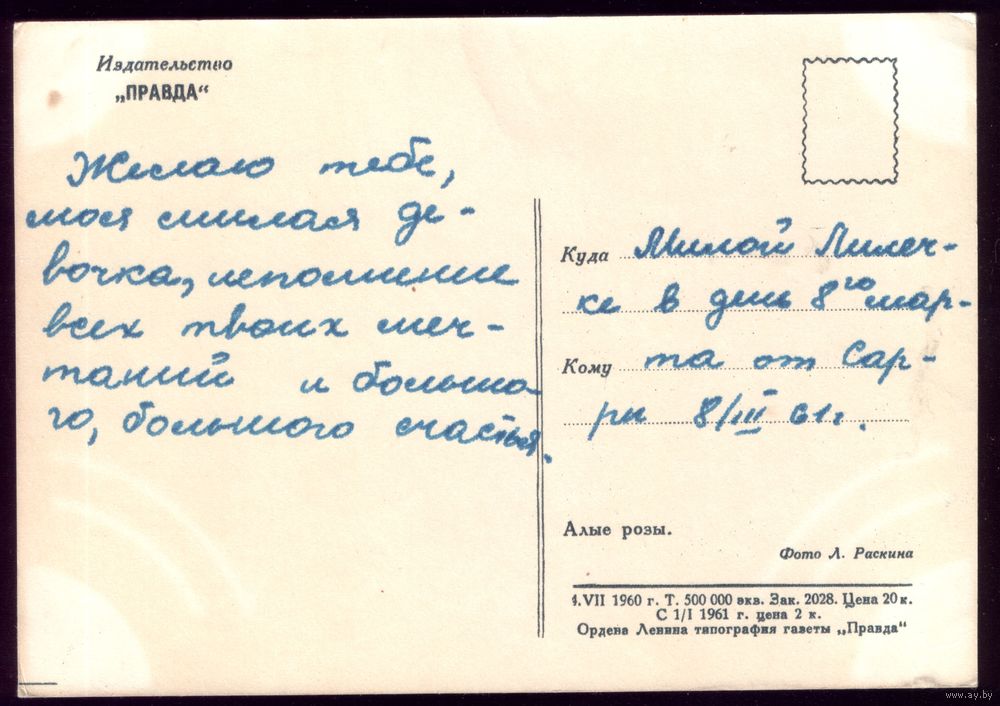 Издательство
„ПРАВДА“
Желаю тебе,
моя милая де-
вочка, исполнение
всех твоих меч-
таний и большо-
го, большого счастья.
Куда Милой Лилеч-
ке в день 8го мар-
Кому та от Сар-
ры 8/III 61 г.
Алые розы.
Фото Л. Раскина
4.VII 1960 г. Т. 500 000 экз. Зак. 2028. Цена 20 к.
С 1/I 1961 г. цена 2 к.
Ордена Ленина типография газеты „Правда“
www.ay.by